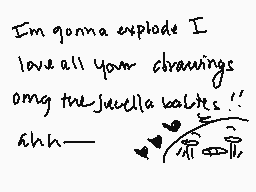 Im gonna explode I
love all your drawings
omg the !!
ahh—